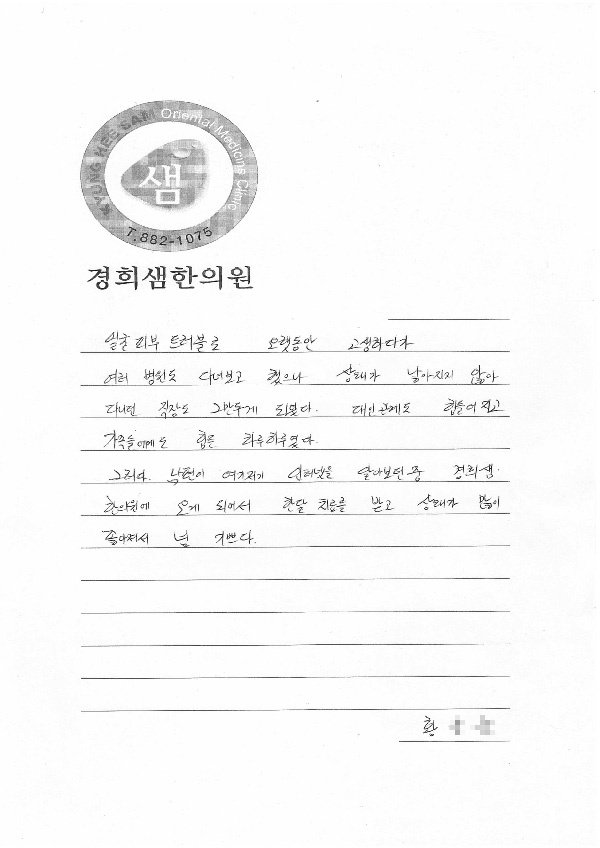 KYUNG HEE SAM Oriental Medicine Clinic
샘
T.882-1075
경희샘한의원
얼굴 피부 트러블로 오랫동안 고생하다가
여러 병원도 다녀보고 했으나 상태가 낳아지지 않아
다니던 직장도 그만두게 되었다. 대인관계도 힘들어 지고
가족들에게도 힘든 하루하루였다.
그러다. 남편이 여기저기 인터넷을 알아보던중 경희샘.
한의원에 오게 되어서 한달 치료를 받고 상태가 많이
좋아져서 넘 기쁘다.
황